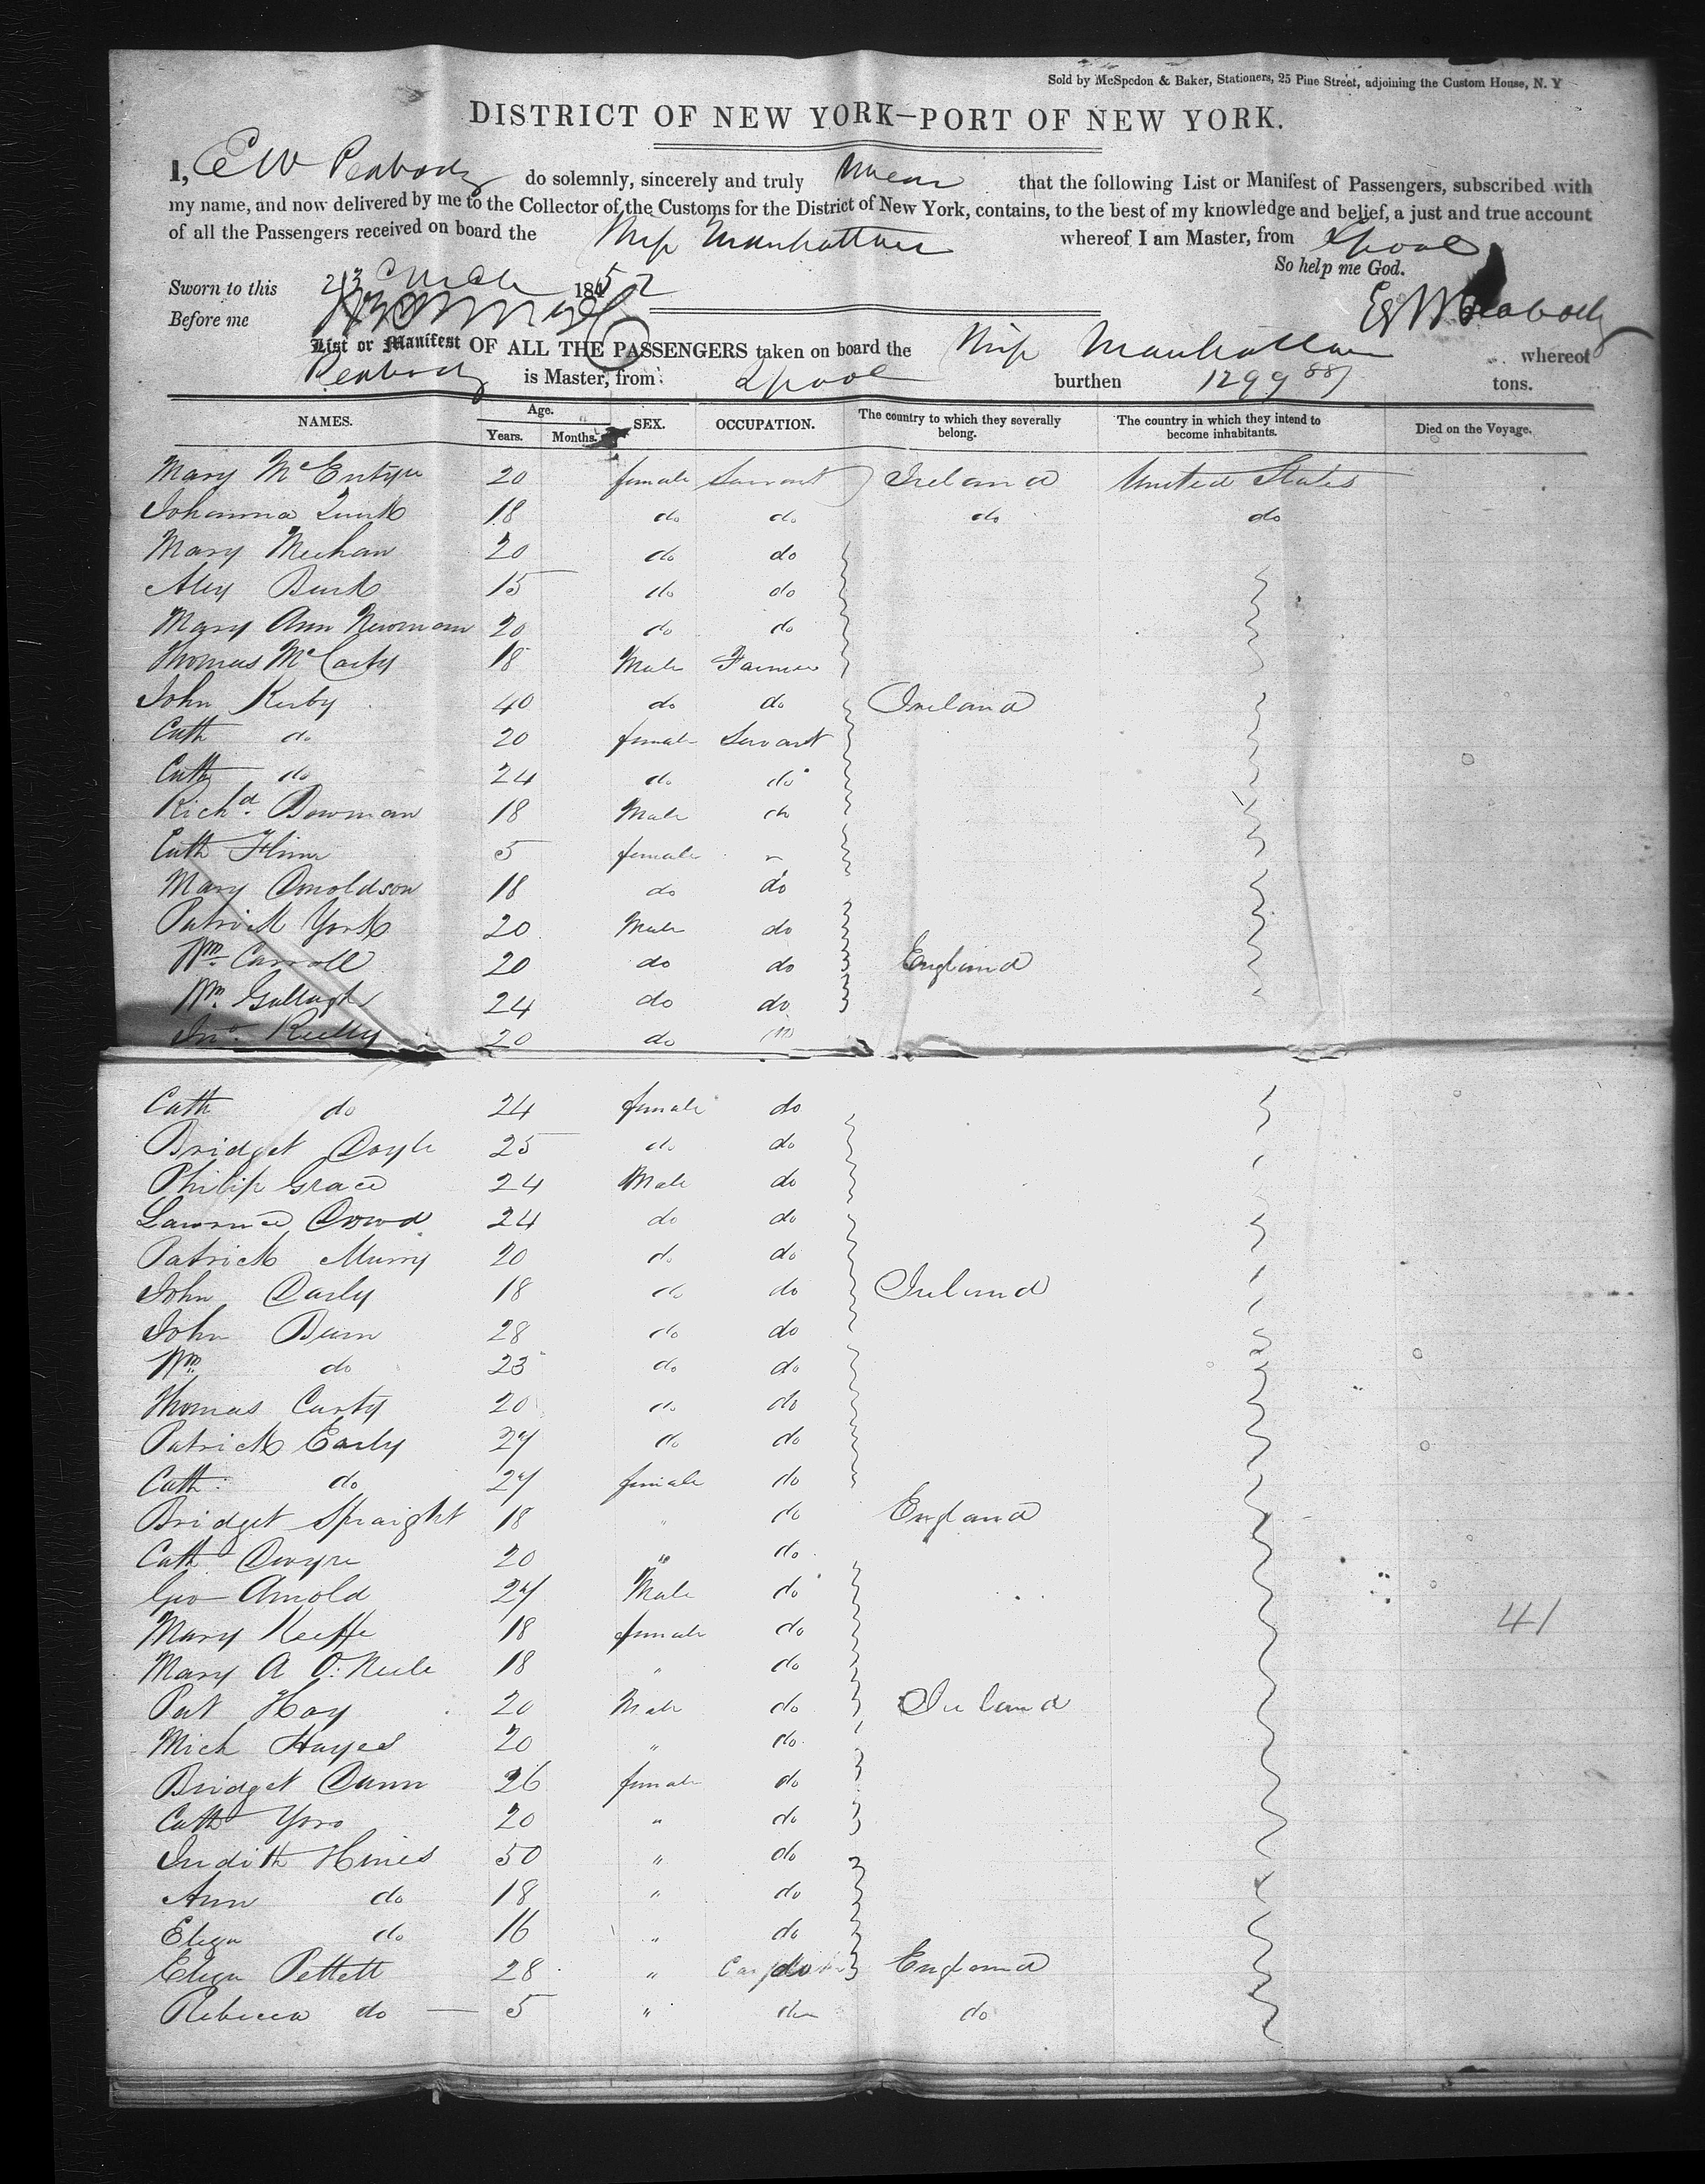 Sold by McSpedon & Baker, Stationers, 25 Pine Street, adjoining the Custom House, N. Y
DISTRICT OF NEW YORK—PORT OF NEW YORK.
I, E W Peabody do solemnly, sincerely and truly swear that the following List or Manifest of Passengers, subscribed with
my name, and now delivered by me to the Collector of the Customs for the District of New York, contains, to the best of my knowledge and belief, a just and true account
of all the Passengers received on board the Ship Manhattan whereof I am Master, from Lpool
So help me God.
Sworn to this 23 March 1852
Before me E W Peabody
List or Manifest OF ALL THE PASSENGERS taken on board the Ship Manhattan whereof
Peabody is Master, from Lpool burthen 1299 88/ tons.
NAMES. Age. Years. Months. SEX. OCCUPATION. The country to which they severally belong. The country in which they intend to become inhabitants. Died on the Voyage.
Mary McEntyre 20 female Servant Ireland United States
Johanna Quirk 18 do do do do
Mary Meehan 20 do do
Aley Burk 15 do do
Mary Ann Newman 20 do do
Thomas McCarty 18 Male Farmer
John Kerby 40 do do Ireland
Cath do 20 female Servant
Cath do 24 do do
Richd. Bowman 18 Male do
Cath Flinn 5 female
Mary Donoldson 18 do do
Patrick York 20 Male do
Wm. Carroll 20 do do England
Wm. Gallagh 24 do do
Jno. Reilly 20 do
Cath do 24 female do
Bridget Doyle 25 do do
Philip Grace 24 Male do
Lawrence Dowd 24 do do
Patrick Murry 20 do do
John Darly 18 do do Ireland
John Burn 28 do do
Wm. do 23 do do
Thomas Carty 20 do do
Patrick Early 24 do do
Cath: do 24 female do
Bridget Spraight 18 " do England
Cath Dwyre 20 " do
Geo Arnold 24 Male do
Mary Keeffe 18 female do 41
Mary A O:Neile 18 " do
Pat Hay 20 Male do Ireland
Mich Hayes 20 " do
Bridget Dunn 26 female do
Cath 20 " do
Judith Hines 50 " do
Ann do 18 " do
Eliza do 16 " do
Eliza Pettett 28 " do England
Rebecca do — 5 " do do